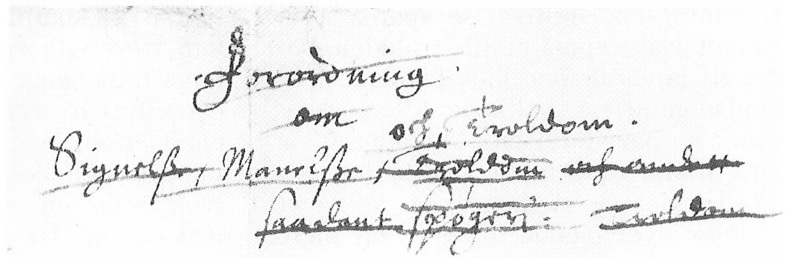 Forordning.
om och Troldom.
Signelße, Manelße, Trolddom och andett
saadant spøgeri. Troldom